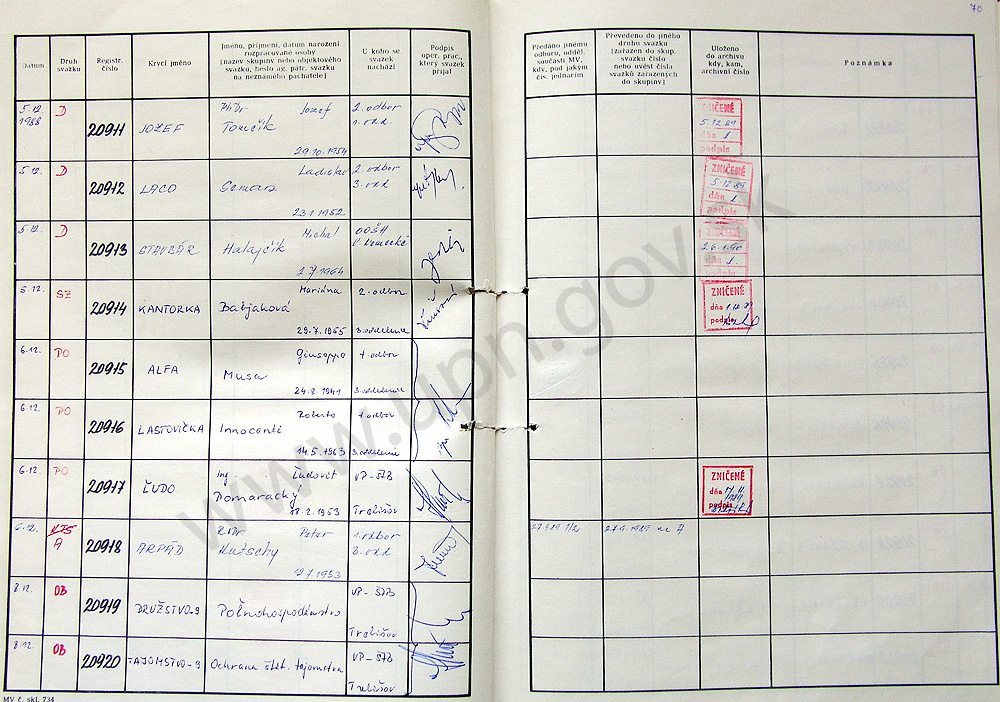 70
Datum
Druh
svazku
Registr.
číslo
Krycí jméno
Jméno, příjmení, datum narození
rozpracované osoby
(název skupiny nebo objektového
svazku, heslo ag. pátr. svazku
na neznámého pachatele)
U koho se
svazek
nachází
Podpis
oper. prac.,
který svazek
přijal
Předáno jinému
odboru, odděl.
součásti MV,
kdy, pod jakým
čís. jednacím
Převedeno do jiného
druhu svazku
(zařazen do skup.
svazku číslo
nebo uvést čísla
svazků zařazených
do skupiny)
Uloženo
do archivu
kdy, kam,
archivní číslo
Poznámka
5.12.
1988
D
20911
JOZEF
PhDr Jozef
Tomčík
29.10.1954
2. odbor
1. odd.
ZNIČENÉ
5.12.89
dňa
podpis
5.12.
D
20912
LACO
Ladislav
23.1.1952
2. odbor
3. odd
ZNIČENÉ
5.12.89
dňa
podpis
5.12.
D
20913
STAVBÁR
Michal
Halajčík
2.7.1964
OOŠH
ZNIČENÉ
2.6.1.90
dňa
podpis
5.12.
SZ
20914
KANTORKA
Mariána
Babjaková
29.7.1965
2. odbor
3. oddelenie
ZNIČENÉ
dňa
podpis
6.12.
PO
20915
ALFA
Giuseppe
Musa
24.8.1941
1. odbor
3. oddelenie
6.12.
PO
20916
LASTOVIČKA
Roberto
Innocenti
14.5.1963
1. odbor
3. oddelenie
6.12.
PO
20917
ĽUDO
Ing. Ľudovít
Domaracký
18.2.1953
VP-ŠTB
Trebišov
ZNIČENÉ
dňa
1989
podpis
6.12.
A
20918
ARPÁD
Peter
Kutschy
12.7.1953
1. odbor
3. odd.
8.12.
OB
20919
DRUŽSTVO-9
Poľnohospodárstvo
VP-ŠTB
Trebišov
8.12.
OB
20920
TAJOMSTVO-9
Ochrana štát. tajomstva
VP-ŠTB
Trebišov
MV č. skl. 734
www.upn.gov.sk